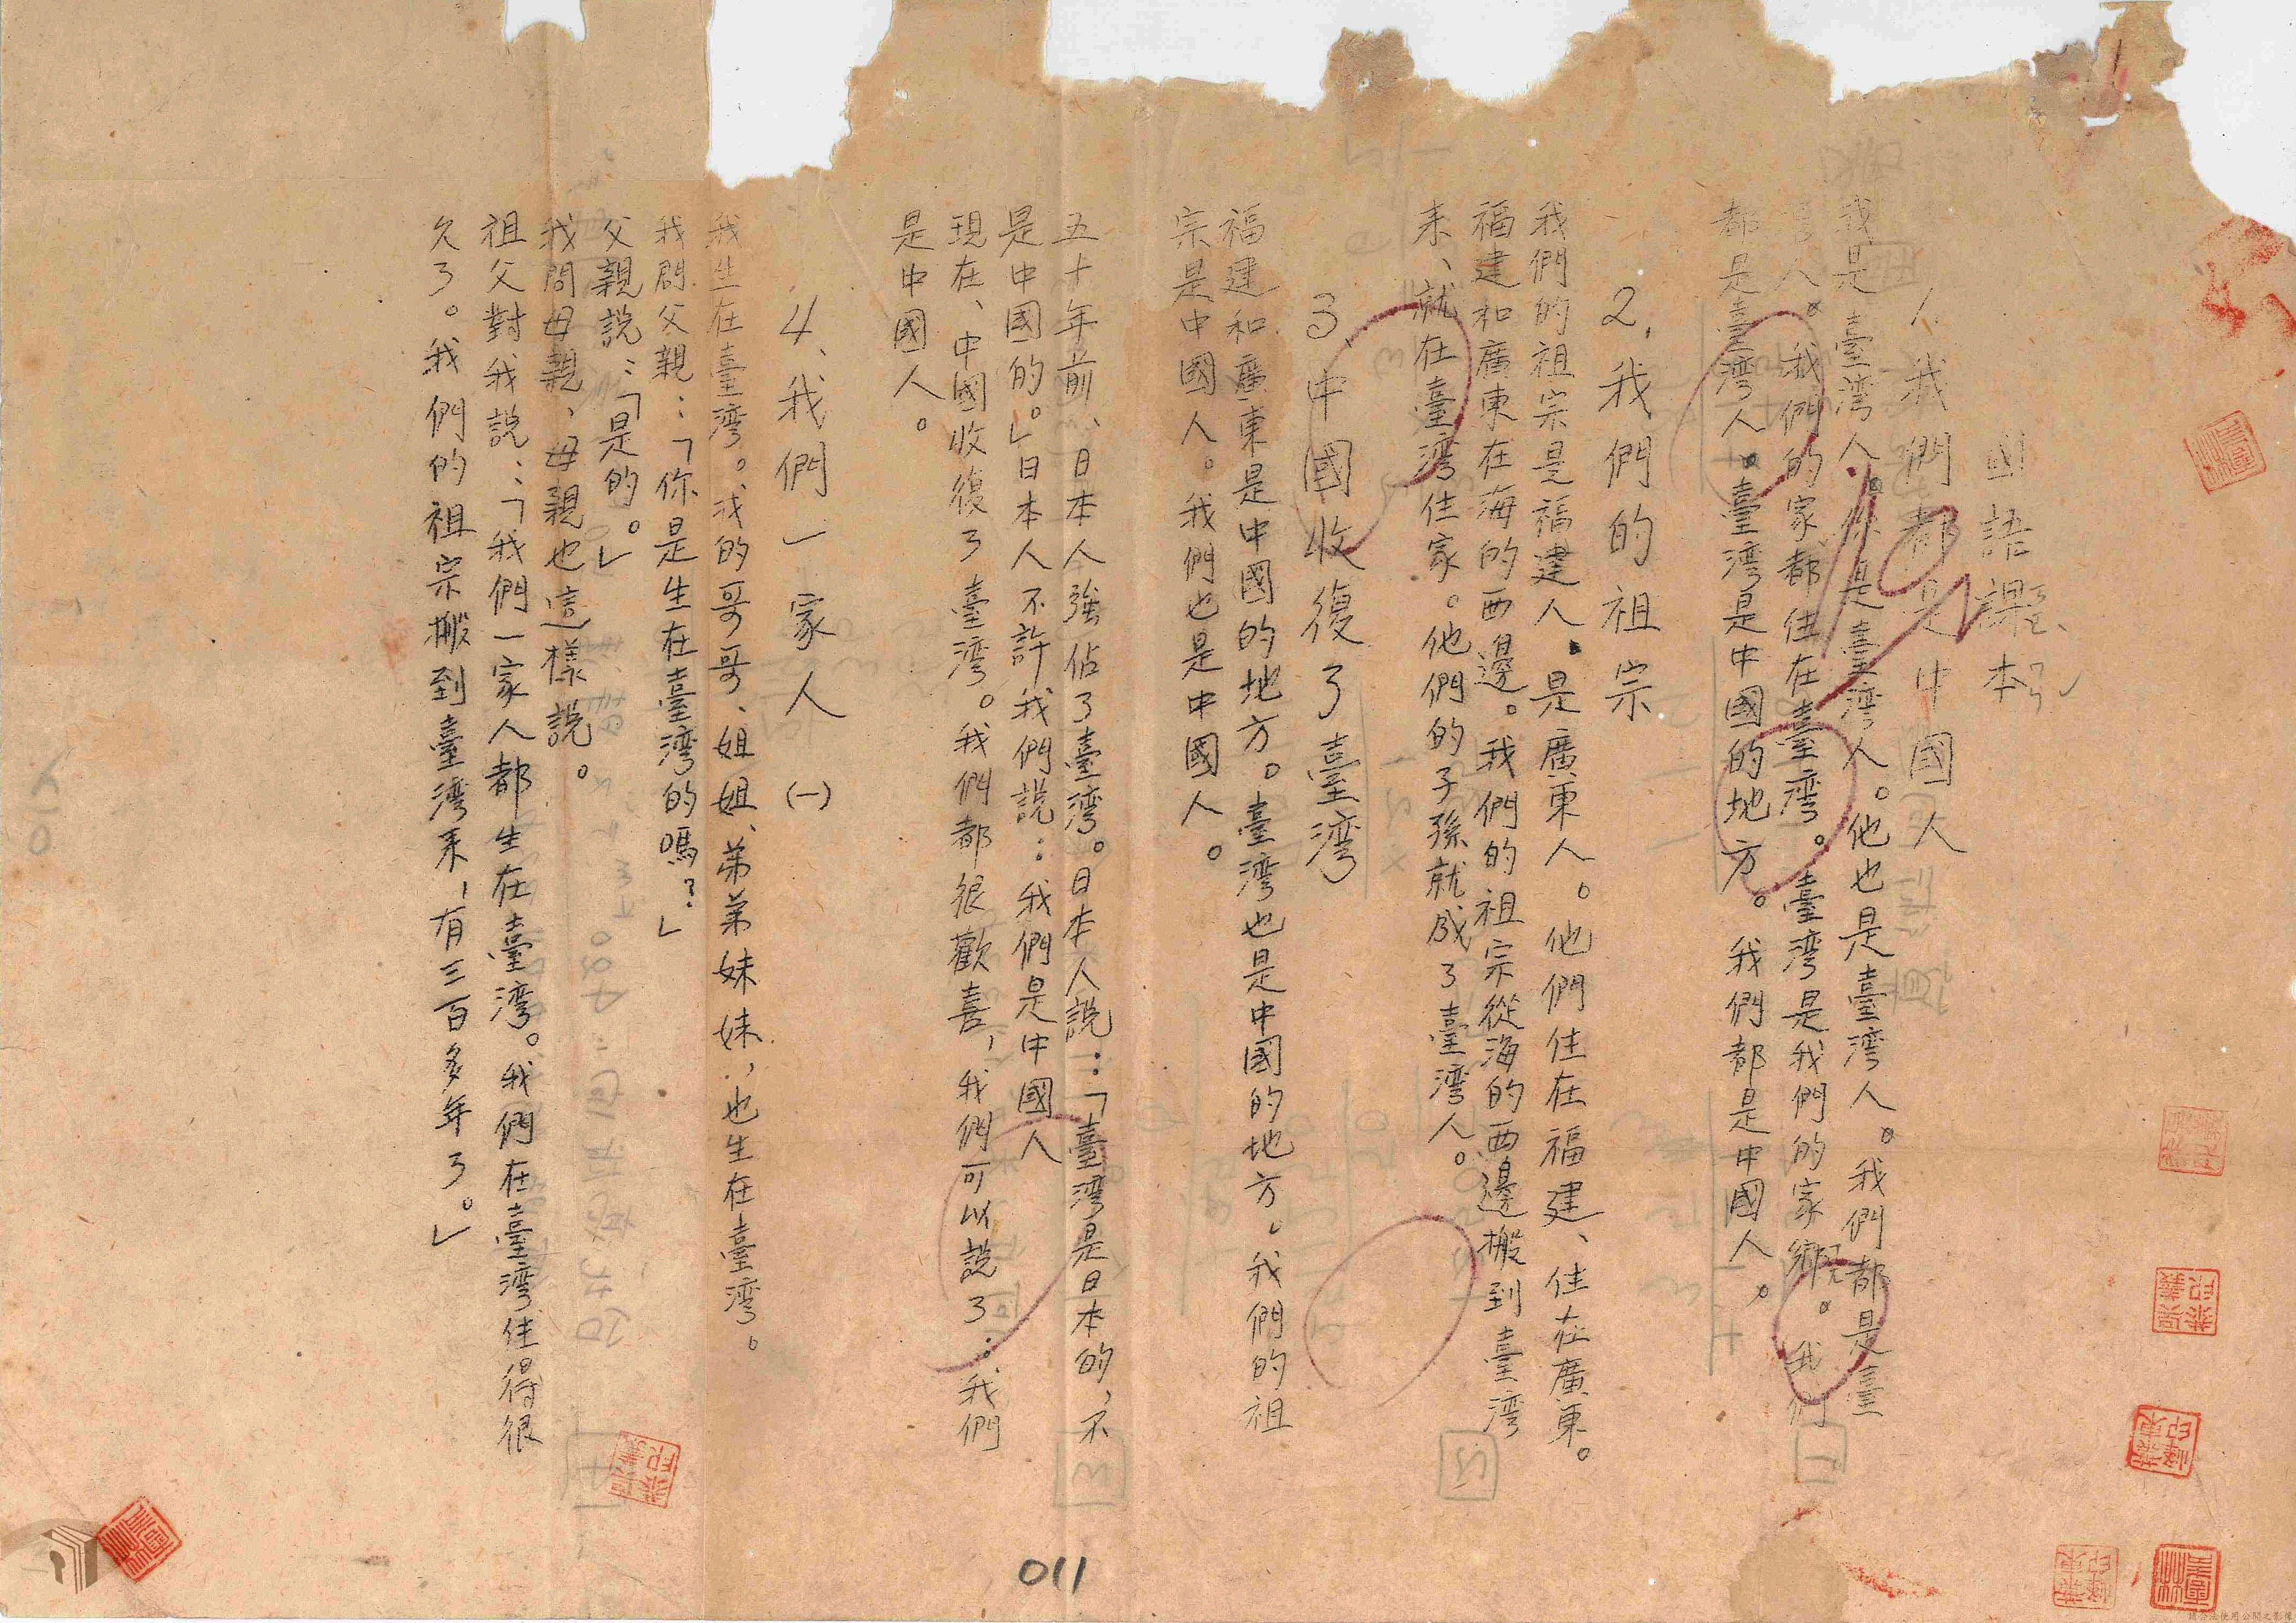 國語課本
1.我們都是中國人
我是臺灣人。你是臺灣人。他也是臺灣人。我們都是臺
灣人。我們的家都住在臺灣。臺灣是我們的家鄉。我們
都是臺灣人。臺灣是中國的地方。我們都是中國人。
2.我們的祖宗
我們的祖宗是福建人、是廣東人。他們住在福建、住在廣東。
福建和廣東在海的西邊。我們的祖宗從海的西邊搬到臺灣
来、就在臺灣住家。他們的子孫就成了臺灣人。
3、中國收復了臺灣
福建和廣東是中國的地方。臺灣也是中國的地方。我們的祖
宗是中國人。我們也是中國人。
五十年前、日本人強佔了臺灣。日本人說：「臺灣是日本的，不
是中國的。」日本人不許我們說：我們是中國人
現在、中國收復了臺灣。我們都很歡喜，我們可以說了：我們
是中國人。
4、我們一家人(一)
我生在臺灣。我的哥哥、姐姐、弟弟妹妹，也生在臺灣。
我問父親：「你是生在臺灣的嗎？」
父親說：「是的。」
我問母親，母親也這樣說。
祖父對我說：「我們一家人都生在臺灣。我們在臺灣住得很
久了。我們的祖宗搬到臺灣来，有三百多年了。」
011